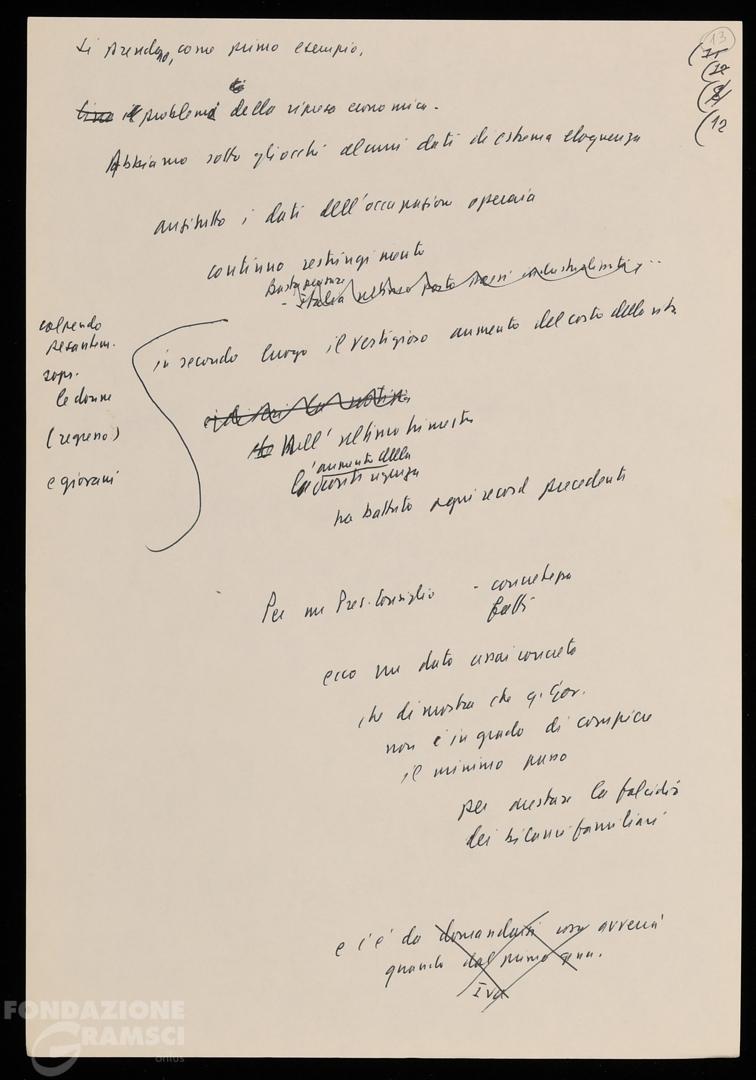 13
(11
(12
(12
Si prendano, come primo esempio,
il problema della ripresa economica.
Abbiamo sotto gli occhi alcuni dati di estrema eloquenza
anzitutto i dati dell'occupazione operaia
continuo restringimento
Basta pensare
- Italia ultimo posto paesi industrializzati ..
in secondo luogo il vertiginoso aumento del costo della vita
colpendo
pesantem.
sopr.
le donne
(regresso)
e giovani
Nell'ultimo trimestre
l'aumento della
contingenza
ha battuto ogni record precedente
Per un Pres. Consiglio - concretezza
fatti
ecco un dato assai concreto
che dimostra che q. Gov.
non è in grado di compiere
il minimo passo
per arrestare la falcidia
dei bilanci familiari
e c'è da domandarsi cosa avverrà
quando dal primo genn.
Iva
FONDAZIONE
GRAMSCI
onlus